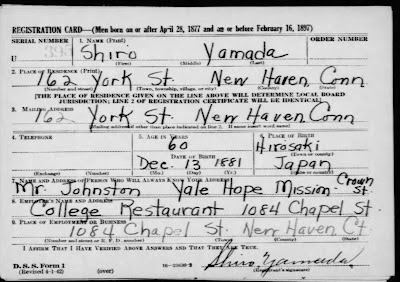 REGISTRATION CARD—(Men born on or after April 28, 1877 and on or before February 16, 1897)
SERIAL NUMBER 1. NAME (Print) ORDER NUMBER
U 395 Shiro Yamada
(First) (Middle) (Last)
2. PLACE OF RESIDENCE (Print)
162 York St. New Haven Conn
(Number and street) (Town, township, village, or city) (County) (State)
[THE PLACE OF RESIDENCE GIVEN ON THE LINE ABOVE WILL DETERMINE LOCAL BOARD
JURISDICTION; LINE 2 OF REGISTRATION CERTIFICATE WILL BE IDENTICAL]
3. MAILING ADDRESS
162 York St. New Haven Conn
[Mailing address if other than place indicated on line 2. If same insert word same]
4. TELEPHONE 5. AGE IN YEARS 6. PLACE OF BIRTH
60 Hirosaki
DATE OF BIRTH (Town or county)
Dec. 13 1881 Japan
(Exchange) (Number) (Mo.) (Day) (Yr.) (State or country)
7. NAME AND ADDRESS OF PERSON WHO WILL ALWAYS KNOW YOUR ADDRESS
Mr. Johnston Yale Hope Mission Crown St.
8. EMPLOYER'S NAME AND ADDRESS
College Restaurant 1084 Chapel St.
9. PLACE OF EMPLOYMENT OR BUSINESS
1084 Chapel St. New Haven Ct.
(Number and street or R. F. D. number) (Town) (County) (State)
I AFFIRM THAT I HAVE VERIFIED ABOVE ANSWERS AND THAT THEY ARE TRUE.
D. S. S. Form 1
(Revised 4-1-42) (over) Shiro Yamada
(Registrant's signature)